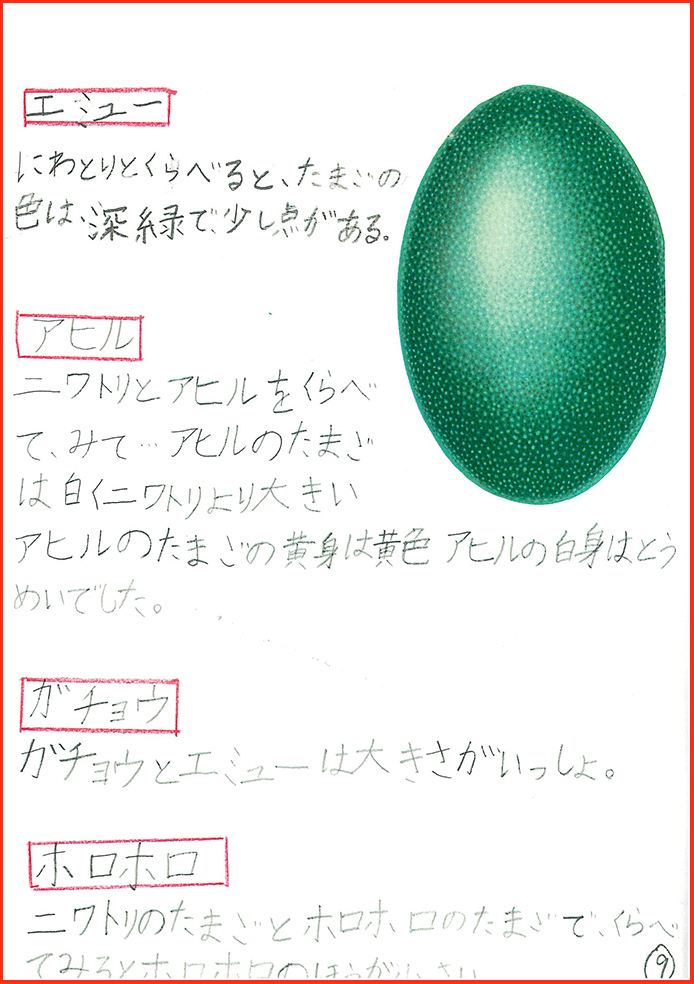 エミュー
にわとりとくらべると、たまごの
色は、深緑で、少し点がある。
アヒル
ニワトリとアヒルをくらべ
て、みて…アヒルのたまご
は白くニワトリより大きい
アヒルのたまごの黄身は黄色 アヒルの白身はとう
めいでした。
ガチョウ
ガチョウとエミューは大きさがいっしょ。
ホロホロ
ニワトリのたまごとホロホロのたまごで、くらべ
てみるとホロホロのほうが小さい
9